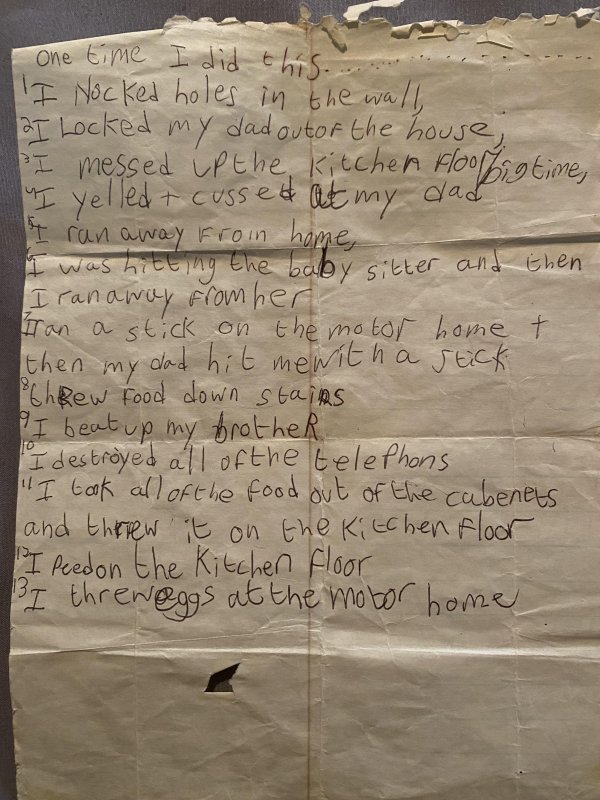 One time I did this..................
1 I Nocked holes in the wall,
2 I Locked my dad out of the house,
3 I messed up the kitchen floor big time,
4 I yelled + cussed at my dad
5 I ran away from home,
6 I was hitting the baby sitter and then
I ran away from her
7 I ran a stick on the motor home +
then my dad hit me with a stick
8 threw food down stairs
9 I beat up my brotheR
10 I destroyed all of the telephons
11 I took all of the food out of the cabenets
and threw it on the kitchen floor
12 I Peed on the kitchen floor
13 I threw eggs at the motor home